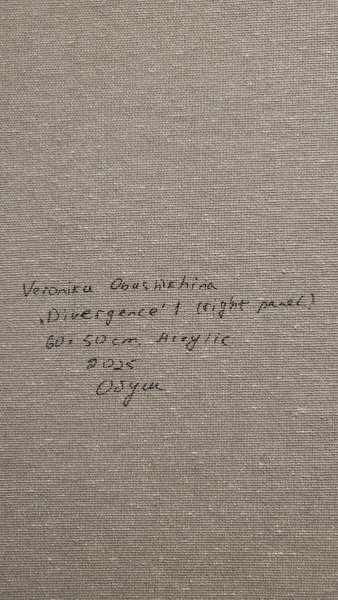 Veronika Obushkhina
„Divergence' I (right panel)
60x50cm. Acrylic
2025
Обуш